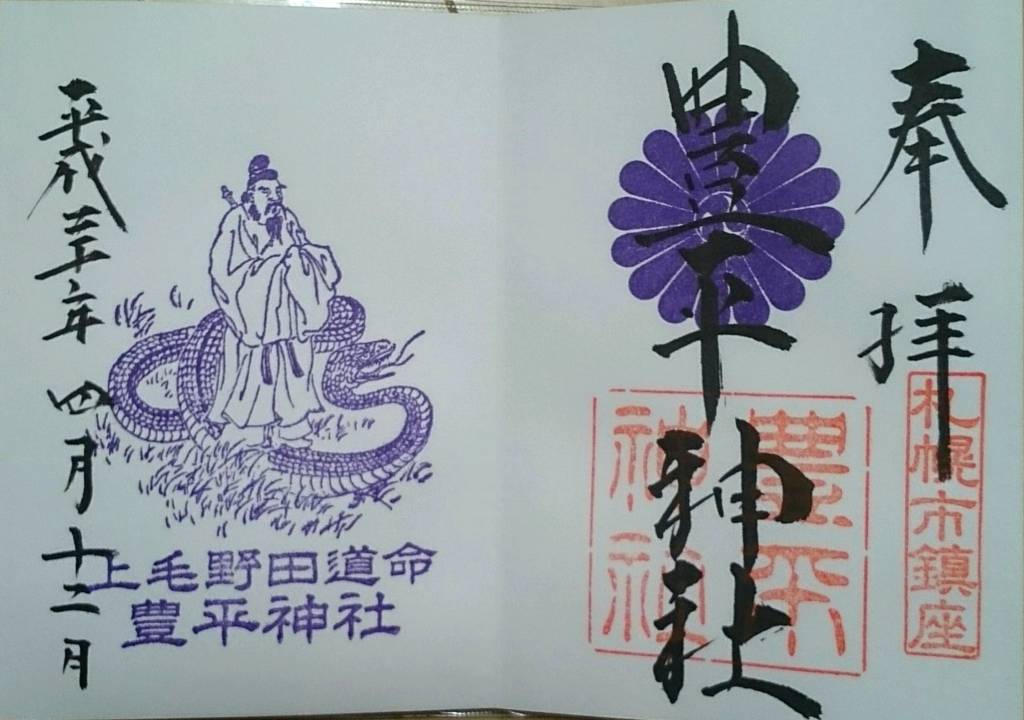 奉拝
札幌市鎮座
豊平神社
豊平
神社
上毛野田道命
豊平神社
平成三十年 四月十二日